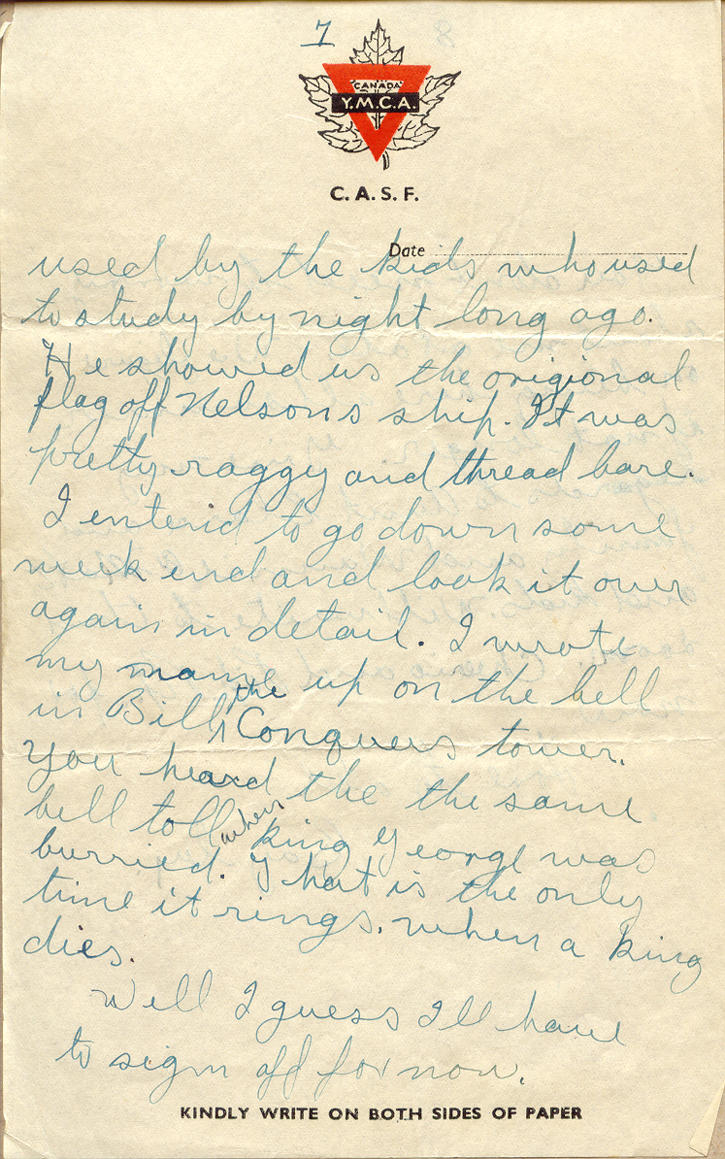 7
CANADA
Y.M.C.A.
C. A. S. F.
Date
used by the kids who used
to study by night long ago.
He showed us the origional
flag off Nelsons ship. It was
pretty raggy and thread bare.
I entend to go down some
week end and look it over
again in detail. I wrote
my name up on the bell
in Bill the Conquers tower.
You heard the the same
bell toll when king George was
burried. That is the only
time it rings. when a king
dies.
Well I guess I'll have
to sign off for now.
KINDLY WRITE ON BOTH SIDES OF PAPER